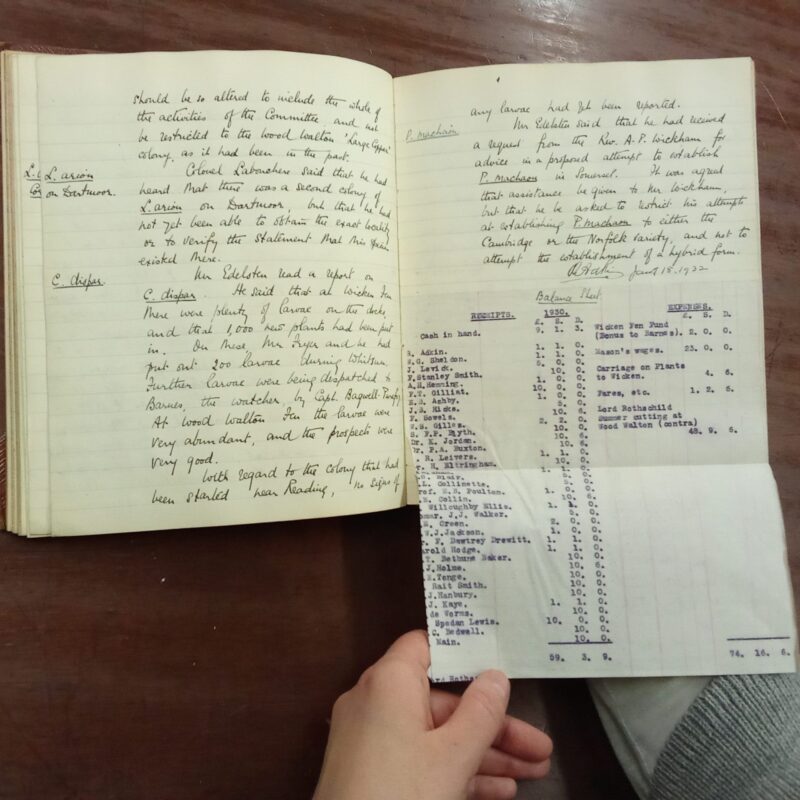 should be so altered to include the whole of
the activities of the Committee, and not
be restricted to the Wood Walton 'Large Copper'
colony, as it had been in the past.
L. arion
on Dartmoor.
Colonel Labouchere said that he had
heard that there was a second colony of
L. arion on Dartmoor, but that he had
not yet been able to obtain the exact locality
or to verify the statement that this species
existed there.
C. dispar.
Mr Edelsten read a report on
C. dispar. He said that at Wicken Fen
there were plenty of larvae on the docks,
and that 1,000 new plants had been put
in. On these, Mr Fryer and he had
put out 200 larvae during Whitsun.
Further larvae were being despatched to
Barnes, the watcher, by Capt. Bagwell-Purefoy.
At Wood Walton Fen the larvae were
very abundant, and the prospects were
very good.
With regard to the colony that had
been started near Reading, no signs of
any larvae had yet been reported.
P. machaon
Mr Edelsten said that he had received
a request from the Rev. A. P. Wickham for
advice in a proposed attempt to establish
P. machaon in Somerset. It was agreed
that assistance be given to Mr Wickham,
but that he be asked to restrict his attempts
at establishing P. machaon to either the
Cambridge or the Norfolk variety, and not to
attempt the establishment of a hybrid form.
Jany 18. 1932
Balance Sheet
RECEIPTS. 1930. EXPENSES.
£. S. D. £. S. D.
Cash in hand. 9. 1. 3. Wicken Fen Fund
(Bonus to Barnes). 2. 0. 0.
R. Adkin. 1. 1. 0.
W.G. Sheldon. 1. 1. 0. Mason's wages. 23. 0. 0.
J. Levick. 5. 0. 0.
F. Stanley Smith. 10. 0. Carriage on Plants
A.H. Hemming. 1. 0. 0. to Wicken. 4. 6.
F.T. Gilliat. 10. 0. 0.
E.B. Ashby. 1. 0. 0. Fares, etc. 1. 2. 6.
J.B. Hicks. 5. 0.
F. Sowels. 10. 6. Lord Rothschild
W.S. Gilles. 2. 2. 0. Summer cutting at
S. F.P. Blyth. 10. 0. Wood Walton (contra)
Dr. K. Jordan. 10. 6. 48. 9. 6.
Dr. P.A. Buxton. 10. 6.
R. Leivers. 1. 1. 0.
H. Eltringham. 10. 0.
Blair.
L. Gollinette. 5. 0.
Prof. E.B. Poulton. 5. 0.
E. Collin. 1. 0. 0.
Willoughby Ellis. 10. 6.
J.J. Walker.
E. Green. 5. 0.
W.J. Jackson. 2. 0. 0.
F. Dawtrey Drewitt. 1. 1. 0.
Harold Hodge. 1. 1. 0.
T. Bethune Baker. 10. 0.
J. Holme. 10. 6.
E. Tonge. 10. 0.
Rait Smith. 10. 0.
J. Hanbury. 10. 0.
J. Kaye. 1. 1. 0.
de Worms. 10. 0.
Spedan Lewis. 10. 0. 0.
C. Bedwell. 10. 0.
Main. 10. 0.
59. 3. 9. 74. 16. 6.